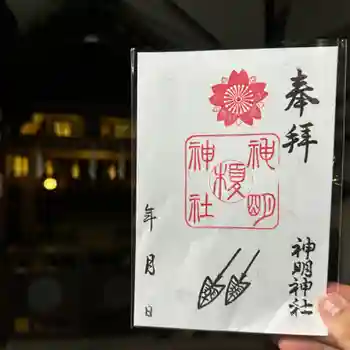 奉拝
神明
榎
神社
神明神社
年月日